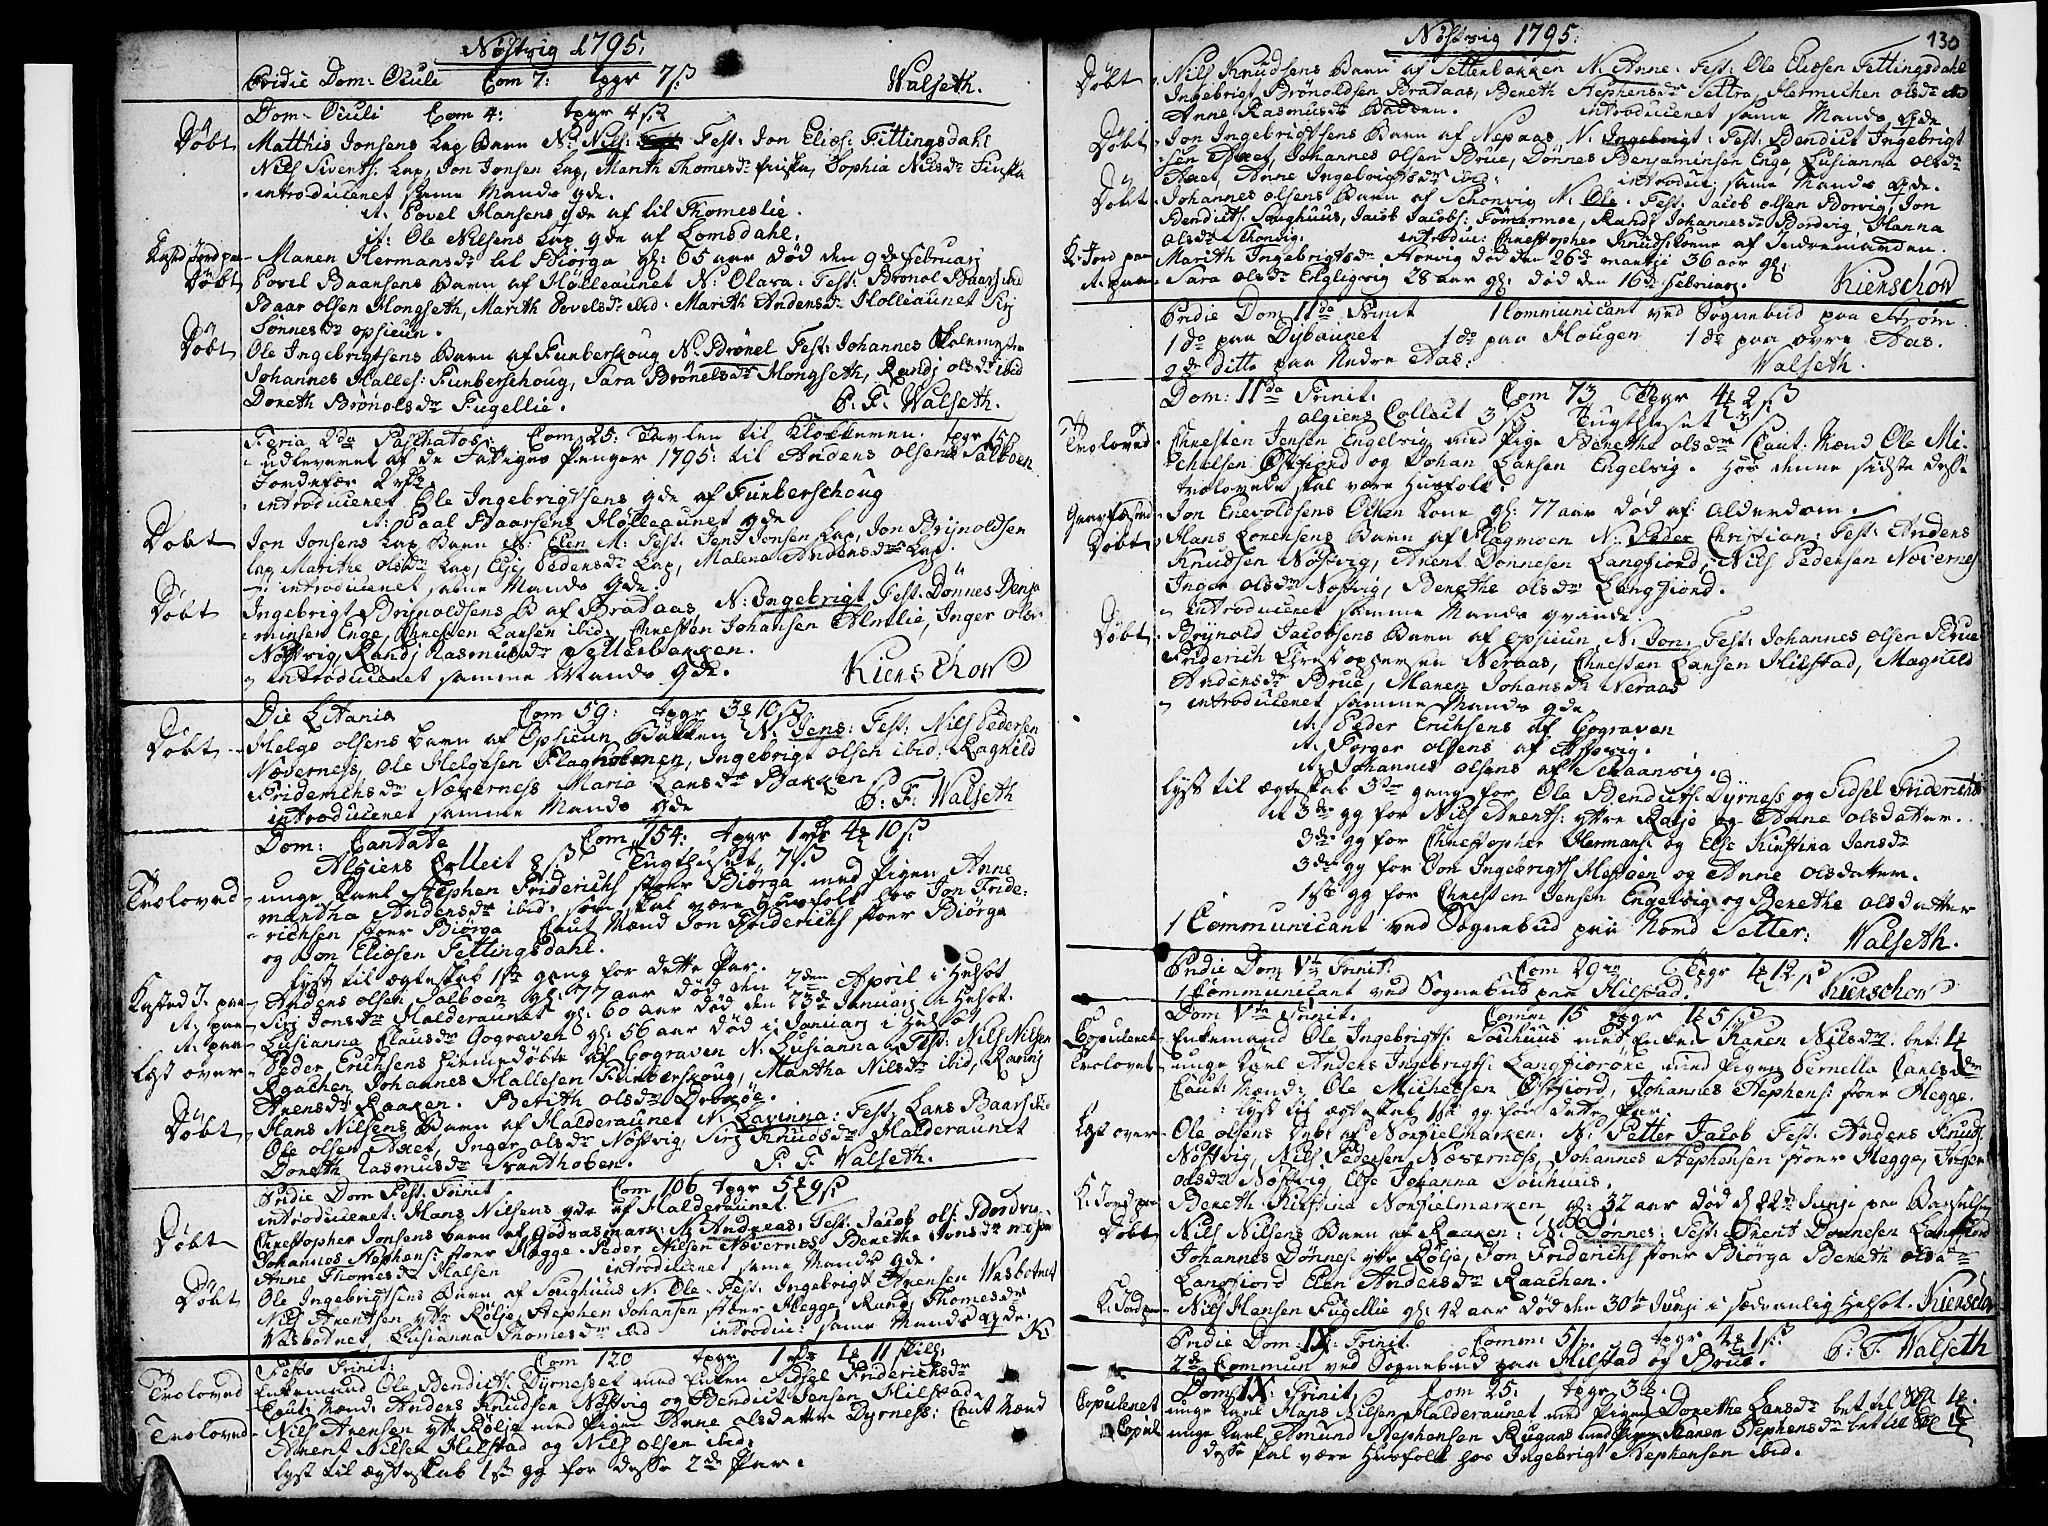 Nöstvig 1795.
Pridie Dom: Oculi Com 7: tpgr 7 ß Walseth.
Dom: Oculi Com 4: tpgr 4 ß
Döbt Matthis Jonsens Lap Barn N: Nils: Fest: Jon Eliæs: Fittingsdahl
Nils Siverts: Lap, Jon Jonsen Lap, Marith Thomesdr Finska, Sophia Nilsdr Finska
introduceret samme Mands qde.
it: Povel Hansens qde af lil Thomeslie.
it: Ole Nilsens Lap qde af Lomsdahl.
Kasted Jord paa Maren Hermansdr lil Biörga gl: 65 aar död den 9de Februarj
Döbt Povil Baarsens Barn af Hölleaunet N: Olava: Fest: Brönol Baars: ibid
Baar olsen Hongseth, Marith Povelsdr ibid. Marith Andersdr Holleaunet Sirj
Sönnesdr opsieun.
Döbt Ole Ingebrigtsens Barn af Funberskoug N: Brönel Fest: Johannes
Johannes Halles: Funberschoug, Sara Brönelsdr Hongseth, Randj olsdr ibid
Doreth Brönolsdr Fugellie. P. F. Walseth.
Feria 2da Paschatos: Com 25: Tavlen til Klokkeren. tpgr 15 ß
udleveret af de Fattiges Penger 1795: til Anders olsen Salboen
Jordefær 2 rdr.
introduceret Ole Ingebrigtsens qde af Funberschoug
it: Paal Baarsens Hölleaunet qde
Döbt Jon Jonsens Lap Barn N: Elen M: Fest: Jens Jonsen Lap, Jon Brynoldsen
Lap Marithe olsdr Lap, Else Pedersdr Lap, Malena Andersdr Lap.
introduceret samme Mands qde.
Döbt Ingebrigt Brynoldsens B af Brataas, N: Ingebrigt, Fest: Dönnes Benja
minsen Enge, Christen Larsen ibid, Christen Johansen Almlie, Inger ols
Nöstvig, Randj Rasmusdr Setterbakken.
introduceret samme Mands qde. Kierschow
Die Litania Com 59: tpgr 3 10 ß
Döbt Helge olsens barn af Opsieun Bakken N: Jens: Fest: Nils Pedersen
Næverness, Ole Helgesen Flagholmen, Ingebrigt olsen ibid, Ragnild
Friderichsdr Næverness Maria Larsdr Bakken
introduceret samme Mands qde P. F. Walseth
Dom: Cantate Com 154: tpgr 1 rdr 4 10 ß
Algiers Collect 8 ß Tugthuset 7 ß
Troloved unge Karl Stephen Friderichs: stoer Biörga med Pigen Anne
Martha Andersdr ibid: som skal være Huusfolk hos Jon Fride-
richsen stoer Biörga Caut Mænd Jon Friderichs stoer Biörga
og Jon Eliæsen Fettingsdahl.
lyst til ægteskab 1ste gang for dette Par.
Kasted J. paa Anders olsen Salboen gl: 77 aar död den 2den April i Helsot
it: paa Siri Jonsdr Halderaunet gl: 60 aar död den 23de Januarj i Helsot.
it: paa Lusianna Clausdr Gograven gl: 56 aar död i Januarj i Helsot
Læst over Peder Erichsens hiemmedöbte af Gograven N: Lusianna Fest: Nils Nilsen
Raachen, Johannes Hallesen Funberskoug, Martha Nilsdr ibid, Karinj
Arensdr Raaken. Berith olsdr
Döbt Hans Nilsens Barn af Halderaunet N: Lavinna: Fest: Lars Baars ibid
Ole olsen Axet, Inger olsdr Nöstvig, Sirj Knudsdr Halderaunet
Doreth Rasmusdr Svarthoben. P. F. Walseth.
Pridie Dom Fest: Trinit Com 106 tpgr 5 9 ß
introduceret: Hans Nilsens qde af Halderaunet.
Döbt Christopher Jonsens barn af Godvasmark: N: Andreas: Fest: Jacob ols:
Johannes Stephens: stoer Hegge. Peder Nilsen Næverness, Berethe
Anne Thomesdr Halsen introduceret samme Mands qde.
Döbt Ole Ingebrigtsens Barn af Souhuus N: Ole. Fest: Ingebrigt Arensen Vasbotnet
Nils Arentsen ytre Rölje, Stephen Johansen stoer Hegge, Thomesdr
Vasbotnet, Lusianna Thomesdr ibid introduc: samme Mands qde K:
Festo Trinit: Com 120 tpgr 1 rdr 4 11 skil:
Troloved Enkemand Ole Bendicts: Dyrnesset med Enken Sidsel Friderichsdr
Caut: Mænd: Anders Knudsen Nöstvig og Bendict Jensen Hilstad.
Troloved Nils Arensen ytre Rölje med Pigen Anne olsdatter Dyrness: Caut Mænd
Arent Nilsen Hilstad og Nils olsen ibid.
lyst til ægteskab 1ste gg for desse 2de Par.
Nöstvig 1795: 130
Döbt Nils Knudsens Barn af Setterbakken N: Anne. Fest: Ole Eliæsen Fettingsdahl
Ingebrigt Brönoldsen Brataas, Bereth Stephensdr Settra, Hermichen olsdr ibid
Anne Rasmusdr Bakken. introduceret samme Mands qde
Döbt Jon Ingebrigtsens Barn af Nepaas N: Ingebrigt: Fest: Bendict Ingebrigt
sen Axet, Johannes olsen Brue, Dönnes Benjaminsen Enge, Lusianna olsdr
Axet, Anne Ingebrigtsdr ibid: introduc: samme Mands qde.
Döbt Johannes olsens Barn af Schonvig N: Ole. Fest: Jacob olsen Borvig, Jon
Bendicts: Soughuus, Jacob Jacobs: Fornermoe, Randj Johannesdr Bordvig, Hanna
olsdr Schonvig. introduc: Christopher Knuds: kone af Indremarken.
K: Jord paa Marith Ingebrigtsdr Storvig död den 26de martij 36 aar gl:
it: paa Sara olsdr Engligvig 28 aar gl: död den 16de Februarj. Kierschow
Pridie Dom 11da Trinit 1 Communicant ved Sognebud paa Ström.
1 do paa Dysaunet 1 do paa Hougen 1 do paa övre Aas.
2de Ditto paa Nedre Aas. Walseth.
Dom: 11da Trinit: Com 73 tpgr 4 2 ß
Algiers Collect 3 ß Tugthuset 3 ß
Troloved Christen Jensen Engelvig med Pige Berethe olsdr Caut: Mænd Ole Mi-
chelsen Östfiord og Johan Larsen Engelvig. Hos denne sidste desse
trolovede skal være Huusfolk.
Gravfæsted Jon Enevoldsens Elken kone gl: 77 aar död af Alderdom.
Döbt Hans Lorensens Barn af Flagmoen N: Peder Christian: Fest: Anders
Knudsen Nöstvig, Arent Dönnesen Langfiord, Nils Pedersen Nævernes
Inger olsdr Nöstvig, Berethe olsdr Langfiord.
introduceret samme Mands qvinde.
Döbt Brynold Jacobsens Barn af Opsieun N: Jon. Fest: Johannes olsen Brue
Friderich Christophersen Neraas, Christen Larsen Hilstad, Magnild
Andersdr Brue, Maren Johansdr Neraas
introduceret samme Mands qde
it: Peder Erichsens af Gograven
it: Torger olsens af
it: Johannes olsens af Schaanvig.
lyst til ægteskab 3die gang for Ole Bendicts: Dyrness og Sidsel Friderichsdr
it 3die gg for Nils Arents: ytre Rölje og Anne olsdatter.
3die gg for Christopher Hermans: og Else Kirstina Jensdr
3die gg for Jon Ingebrigts: Hestöen og Anne olsdatter.
1ste gg for Christen Jensen Engelvig og Berethe olsdatter
1 Communicant ved Sognebud paa Nord Setter: Walseth.
Pridie Dom Vte Trinit: Com 29 tpgr 4 12 ß
1 Communicant ved Sognebud paa Hilstad. Kierschow
Dom Vte Trinit. Comm 15 tpgr 1 5 ß
Copuleret Enkemand Ole Ingebrigts: Souhuus med Enken Karen Nilsdr. bet: 4
Troloved unge Karl Anders Ingebrigts: Langfioröre med Pigen Pernella Carlsdr
Caut: Mænd: Ole Michelsen Östfiord, Johannes Stephens: stoer Hegge.
lyst til ægteskab 1ste gg for dette Par.
Læst over Ole olsens Döbt af Norfielmarken: N: Petter Jacob Fest: Anders Knuds:
Nöstvig, Nils Pedersen Næverness, Johannes Stephensen stoer Hegge, Inger
olsdr Nöstvig, Else Johanna Souhuus.
K: Jord paa Bereth Kirstina Norfielmarken gl: 32 aar död d: 22de Junji paa Barselseng
Döbt Nils Nilsens Barn af Raaken: N: Dönnes: Fest: Arent Dönnesen Langfiord
Johannes Dönnes: ytre Rölje, Jon Friderichs stoer Biörga Bereth olsdr
Langfiord Elen Andersdr Raachen.
K: Jord paa Nils Hansen Fugellie gl: 42 aar död den 30te Junji i sædvanlig Helsot. Kierschow
Pridie Dom: IX: Trinit. Comm: 51: tpgr 4 1 ß
2de Commun ved Sognebud paa Hilstad og Brue. P. F. Walseth
Dom: IX: Trinit Com 25: tpgr 3
Copuleret unge Karl Hans Nilsen Halderaunet med Pigen Dorethe Larsdr bet til 4
Copul unge Karl Amund Stephensen Rugaas med Pigen Karen Stephensdr bet til
desse skal være Huusfolk hos Ingebrigt Stephensen ibid.